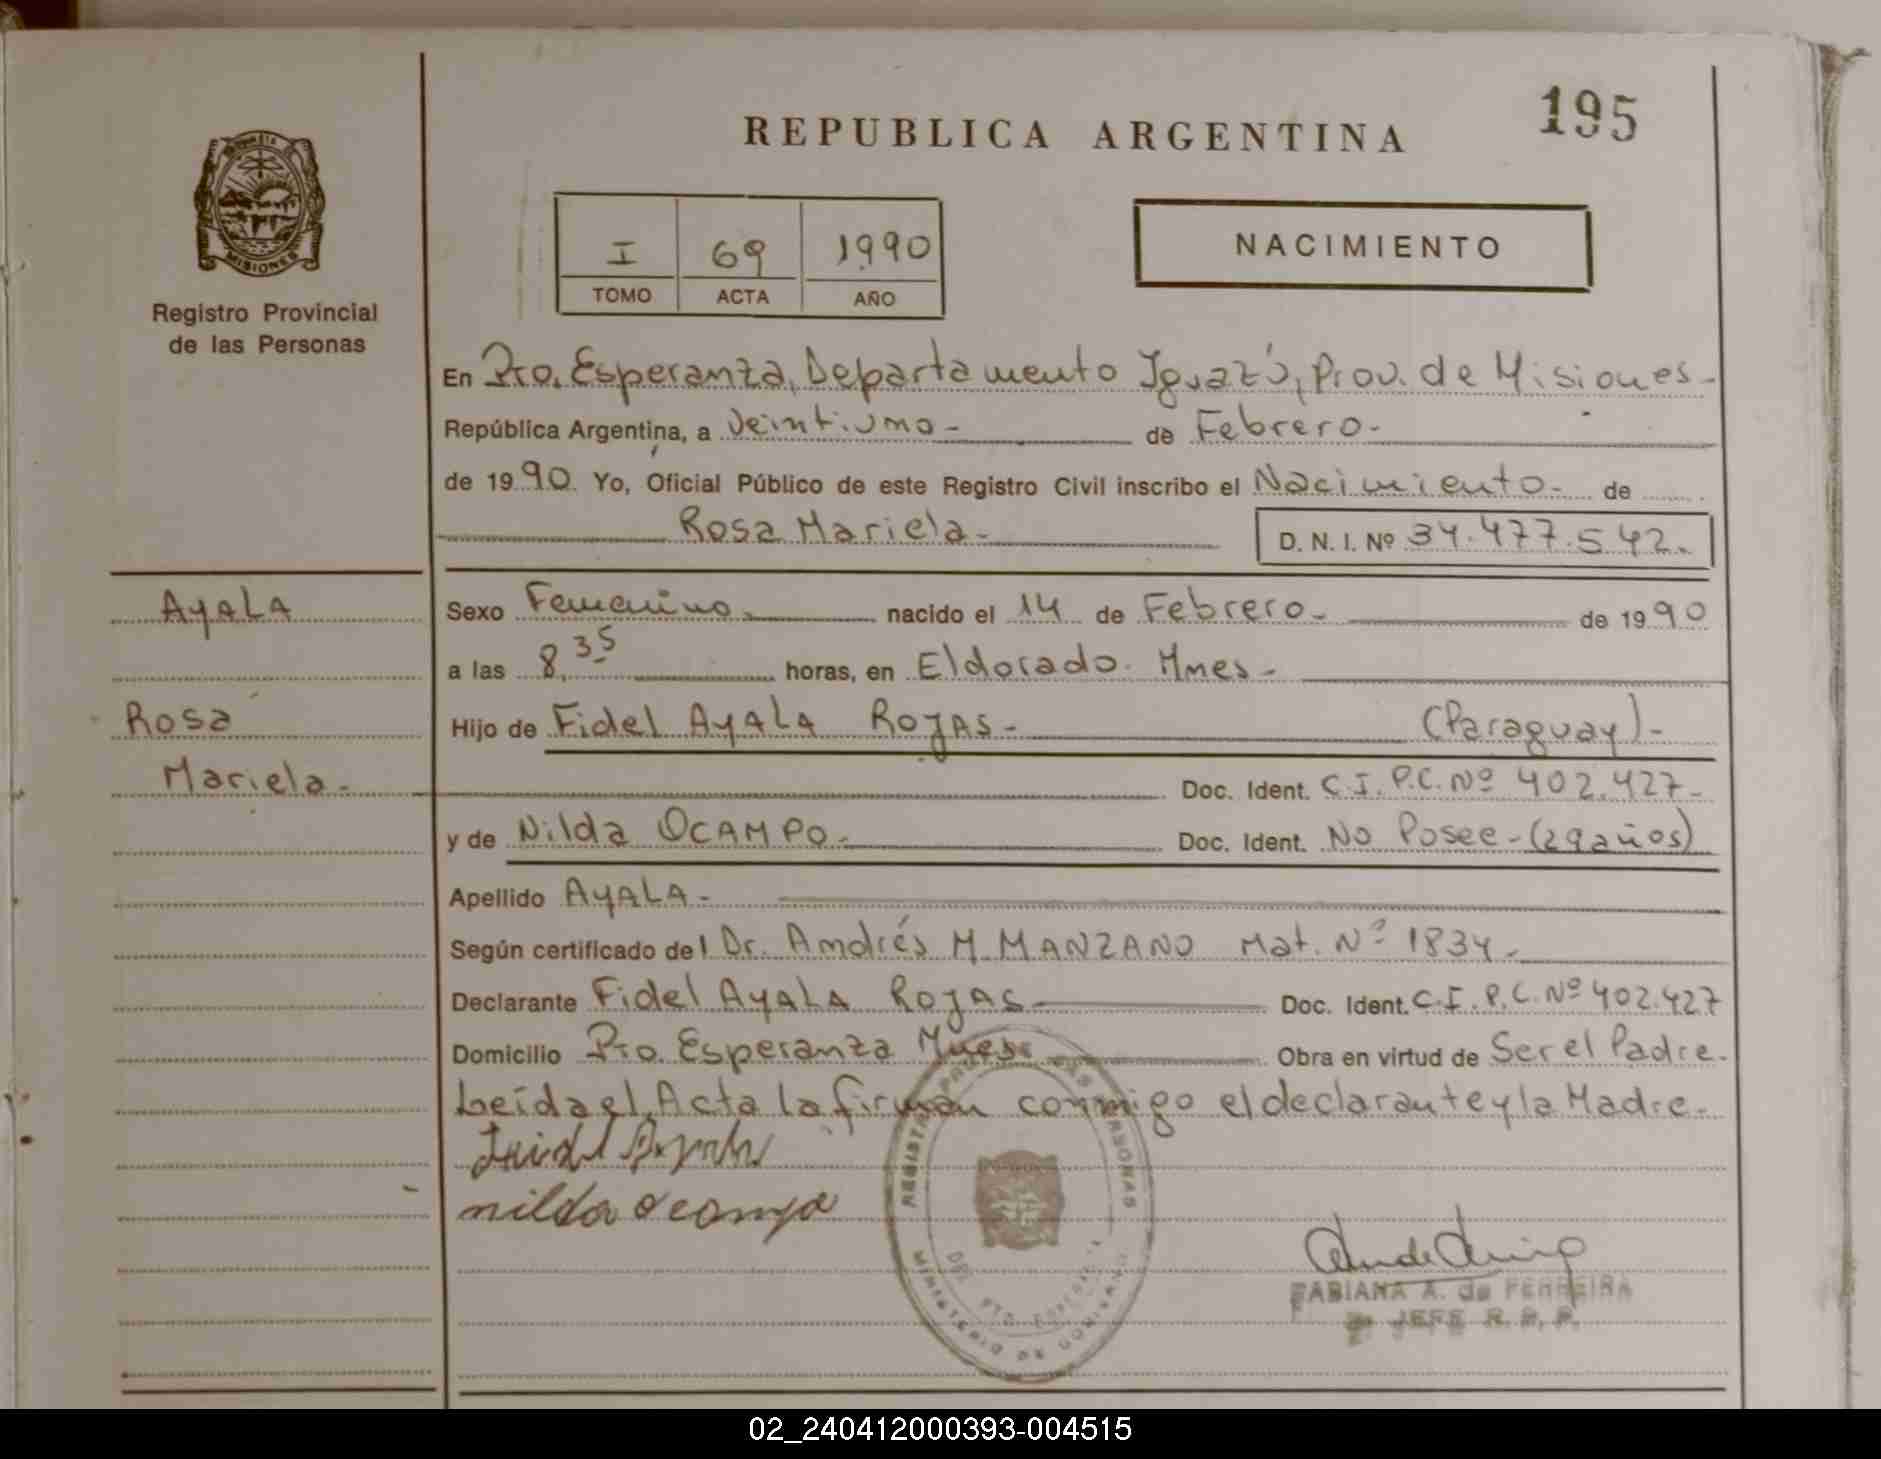 195
REPUBLICA ARGENTINA
MISIONES
Registro Provincial
de las Personas
I 69 1990
TOMO ACTA AÑO
NACIMIENTO
En Pto. Esperanza, Departamento Iguazú, Prov. de Misiones-
República Argentina, a Veintiuno- de Febrero-
de 1990. Yo, Oficial Público de este Registro Civil inscribo el Nacimiento- de
Rosa Mariela- D. N. I. Nº 34.477.542.
AYALA
Rosa
Mariela-
Sexo Femenino- nacido el 14 de Febrero- de 1990
a las 8,35 horas, en Eldorado. Mnes-
Hijo de Fidel AYALA ROJAS- (Paraguay)-
Doc. Ident. C.I.P.C. Nº 402.427-
y de Nilda OCAMPO- Doc. Ident. No Posee-(29años)
Apellido AYALA-
Según certificado del Dr. Andrés M. MANZANO Mat. Nº 1834-
Declarante Fidel AYALA ROJAS- Doc. Ident. C.I.P.C. Nº 402.427
Domicilio Pto. Esperanza Mnes- Obra en virtud de Ser el Padre-
Leída el Acta la firman conmigo el declarante y la Madre-
nilda ocampo
REGISTRO PERSONAS
MINISTERIO DE GOBIERNO
FABIANA A. de FERREIRA
JEFE R. P. P.
02_240412000393-004515